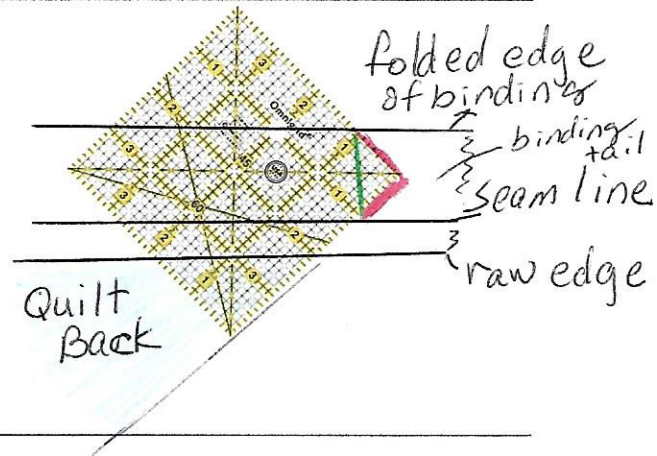 folded edge
of binding
binding
tail
seam line
raw edge
Quilt
Back
Omnigrid
1
3
1
3
2
2
3
1
45
3
1
60
2
2
1
3